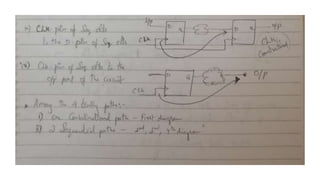 ii) Clk pin of Seq ckts
to the D pin of Seq ckts
I/P
D
Q
D
Q
O/P
Clk
(Clk is
Combinational)
iii) Clk pin of Seq ckts to the
O/P port of the circuit
D
Q
O/P
Clk
* Among the 4 timing paths:-
i) Combinational path - First diagram
ii) 3 Sequential paths - 2nd, 3rd, 4th diagram